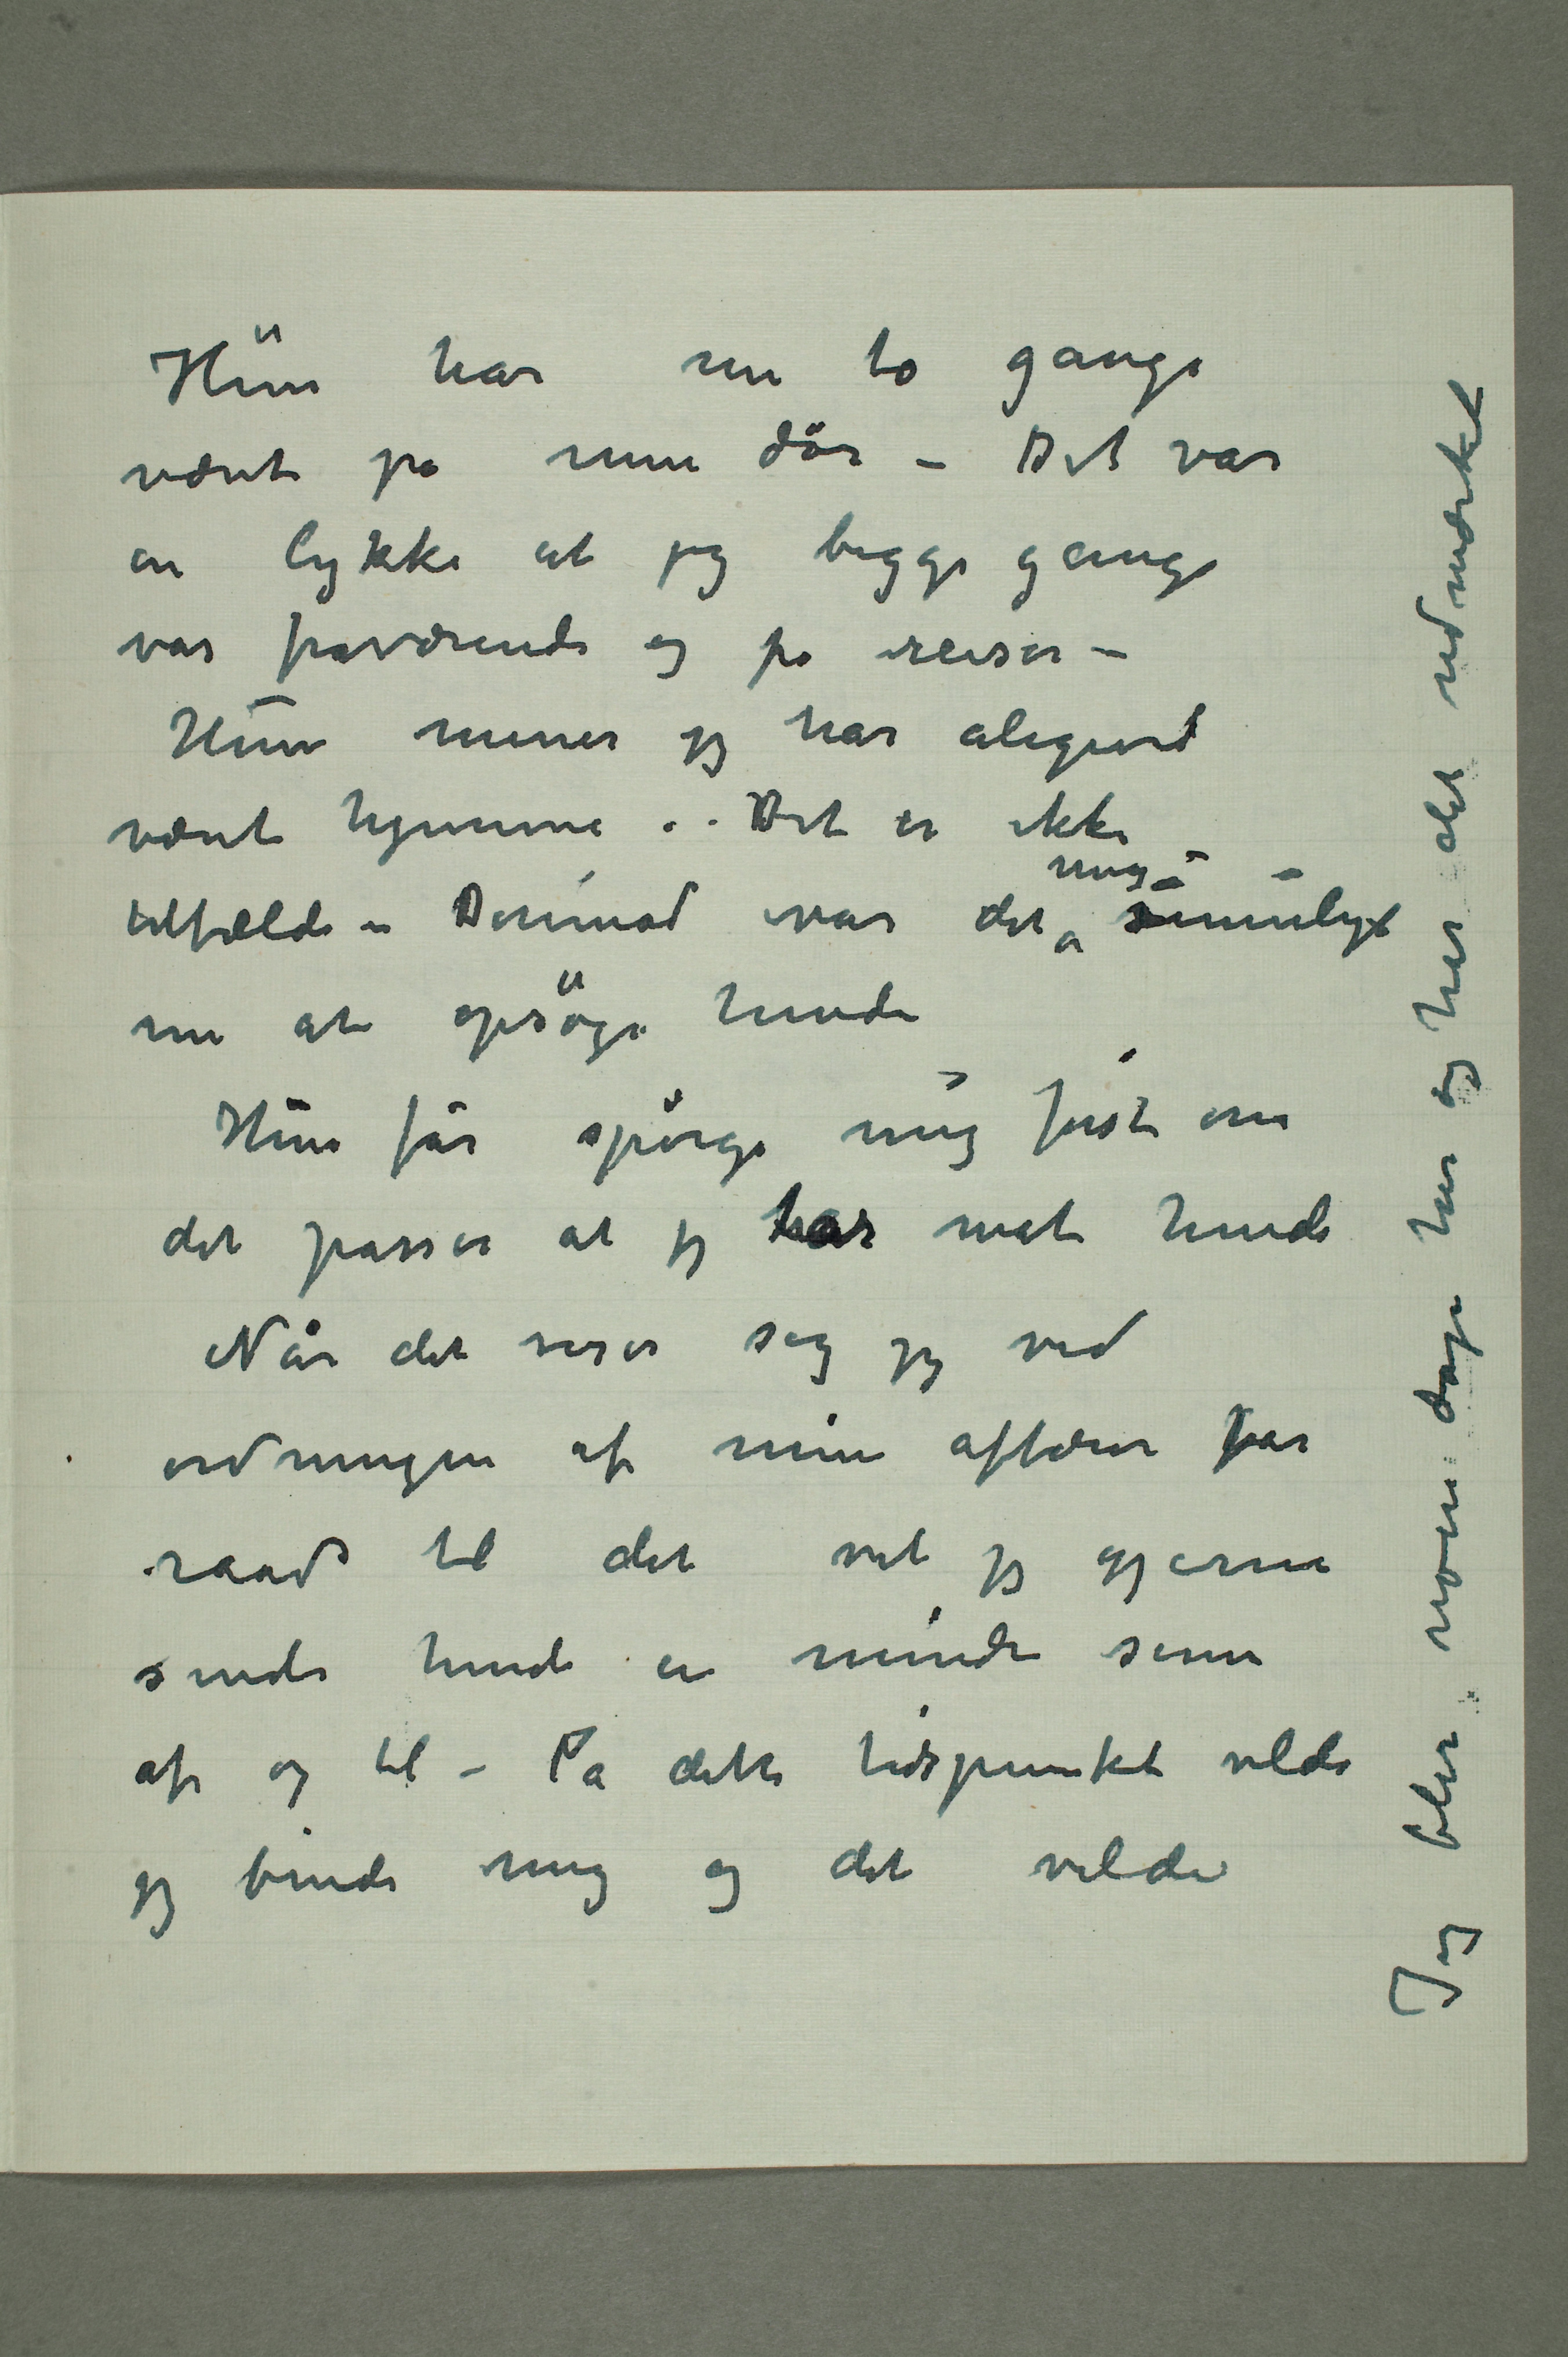 Hun har nu to gange
været på min dör – Det var
en lykke at jeg begge gange
var fraværende og på reiser –
Hun mener jeg har alligevel
været hjemme .. Det er ikke
tilfælde – Derimod var det mig umulig
nu at opsöge hende
Hun får spörge mig först om
det passer at jeg har mot hende
Når det viser sig jeg ved
ordningen af mine affærer får
raad til det vil jeg gjerne
sende hende en mindre sum
af og til – På dette tidspunkt vilde
jeg binde mig og det vilde
Jeg blir noen dage her og har det udmærket